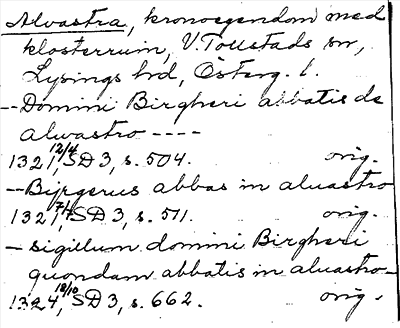 Alvastra, kronoegendom med
klosterruin, V. Tollstads sn,
Lysings hd, Österg. l.
-- Domini Birgheri abbatis de
alwastro ----
1321 12/4, SD 3, s. 504. orig.
-- Byrgerus abbas in aluastro
1321 7/7, SD 3, s. 511. orig.
- sigillum domini Birgheri
quondam abbatis in aluastro -
1324 18/10, SD 3, s. 662. orig.